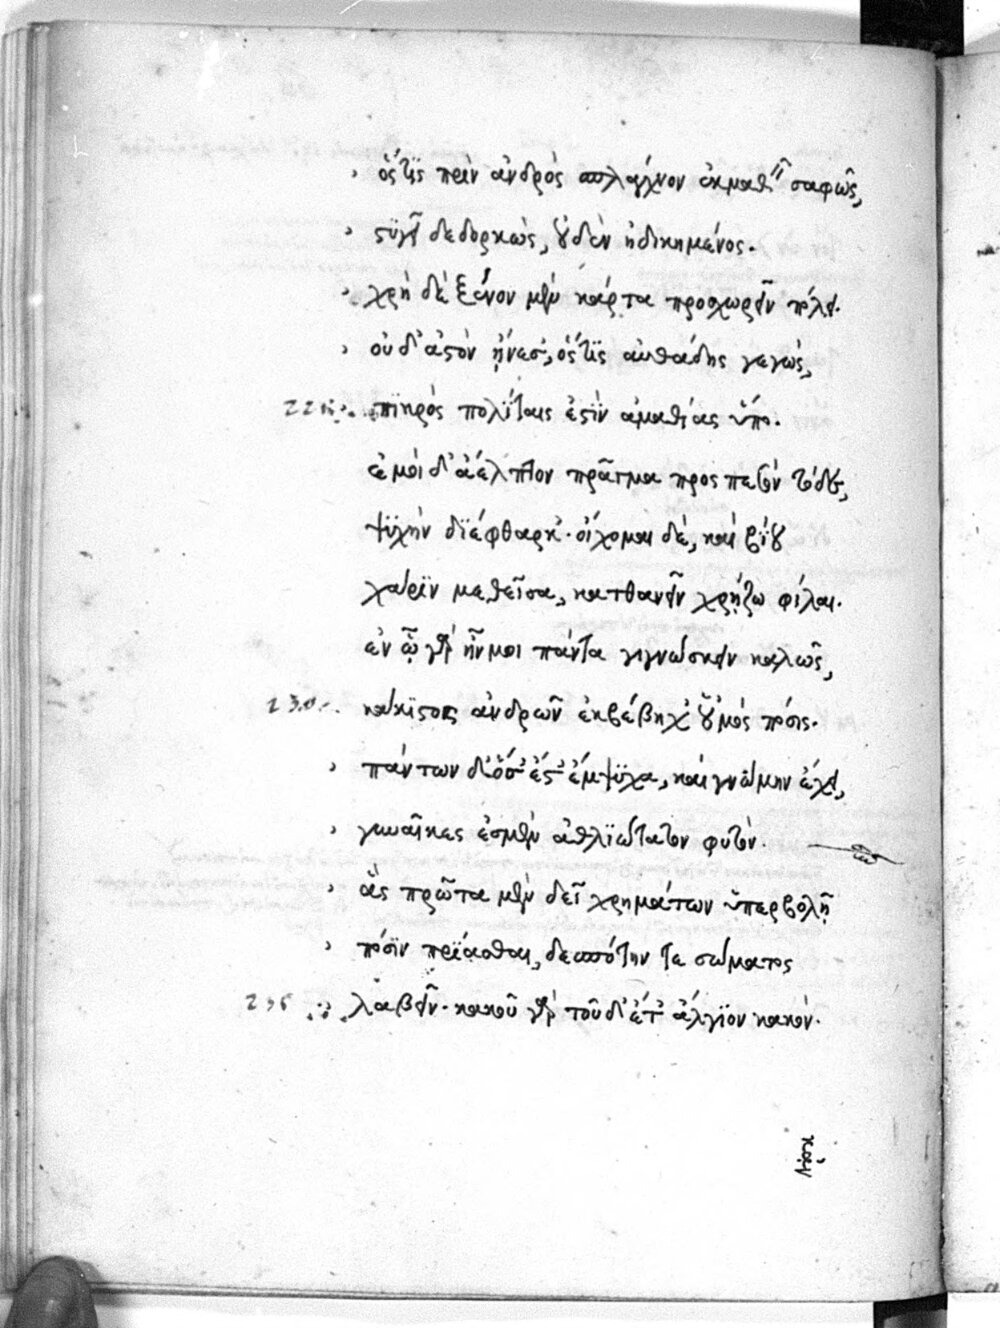 ὅςτις πρὶν ἀνδρὸς σπλάγχνον ἐκμαθεῖν σαφῶς,
στυγεῖ δεδορκὼς, οὐδὲν ἠδικημένος.
χρὴ δὲ ξένον μὲν κάρτα προσχωρεῖν πόλει.
οὐδ' ἀστὸν ᾔνεσ', ὅςτις αὐθάδης γεγὼς,
225 πικρὸς πολίταις ἐστὶν ἀμαθίας ὕπο.
ἐμοὶ δ' ἄελπτον πρᾶγμα προςπεσὸν τόδε,
ψυχὴν διέφθαρκ'. οἴχομαι δὲ, καὶ βίου
χάριν μεθεῖσα, κατθανεῖν χρῄζω φίλαι.
ἐν ᾧ γὰρ ἦν μοι πάντα γιγνώσκειν καλῶς,
230 κάκιστος ἀνδρῶν ἐκβέβηχ' οὑμὸς πόσις.
πάντων δ' ὅσ' ἔστ' ἔμψυχα, καὶ γνώμην ἔχει,
γυναῖκες ἐσμὲν ἀθλιώτατον φυτόν.
ἃς πρῶτα μὲν δεῖ χρημάτων ὑπερβολῇ
πόσιν πρίασθαι, δεσπότην τε σώματος
235 λαβεῖν. κακοῦ γὰρ τοῦδ' ἔτ' ἄλγιον κακόν.
κἀν